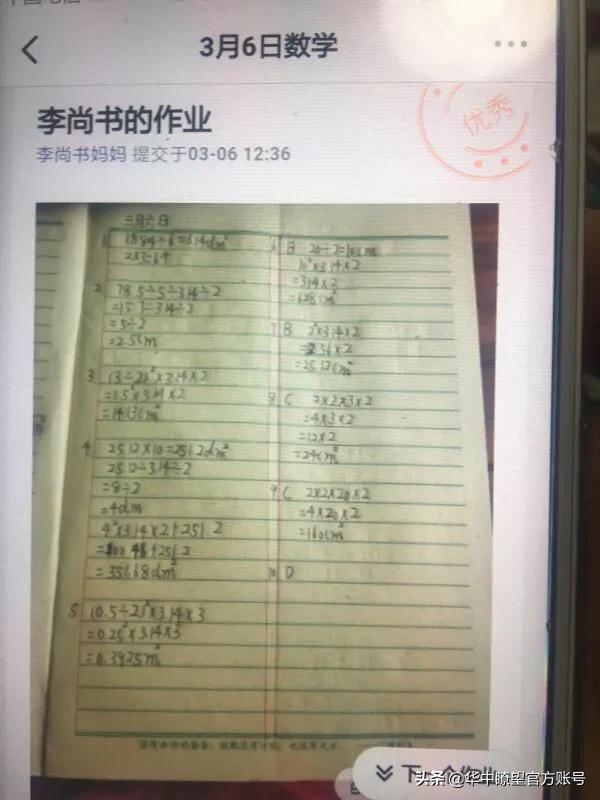 3月6日数学
李尚书的作业
李尚书妈妈 提交于03-06 12:36
优秀
三月六日
1. 18.84÷6=3.14dm²
2. 78.5÷5÷3.14÷2
=15.7÷3.14÷2
=5÷2
=2.5cm
3. (3÷2)²×3.14×2
=1.5²×3.14×2
=14.13cm²
4. 25.12×10=251.2dm²
25.12÷3.14÷2
=8÷2
=4dm
4²×3.14×2+251.2
=100.48+251.2
=351.68dm²
5. (0.5÷2)²×3.14×3
=0.25²×3.14×3
6 B 20÷2=10cm
10²×3.14×2
=314×2
=628cm²
7 B 2²×3.14×2
=12.56×2
=25.12cm²
8. C 2×2×3×2
=4×3×2
=12×2
=24cm²
9 C 2×2×20×2
=4×20×2
=160cm²
10 D
下一个作业
头条 @华中瞭望官方账号